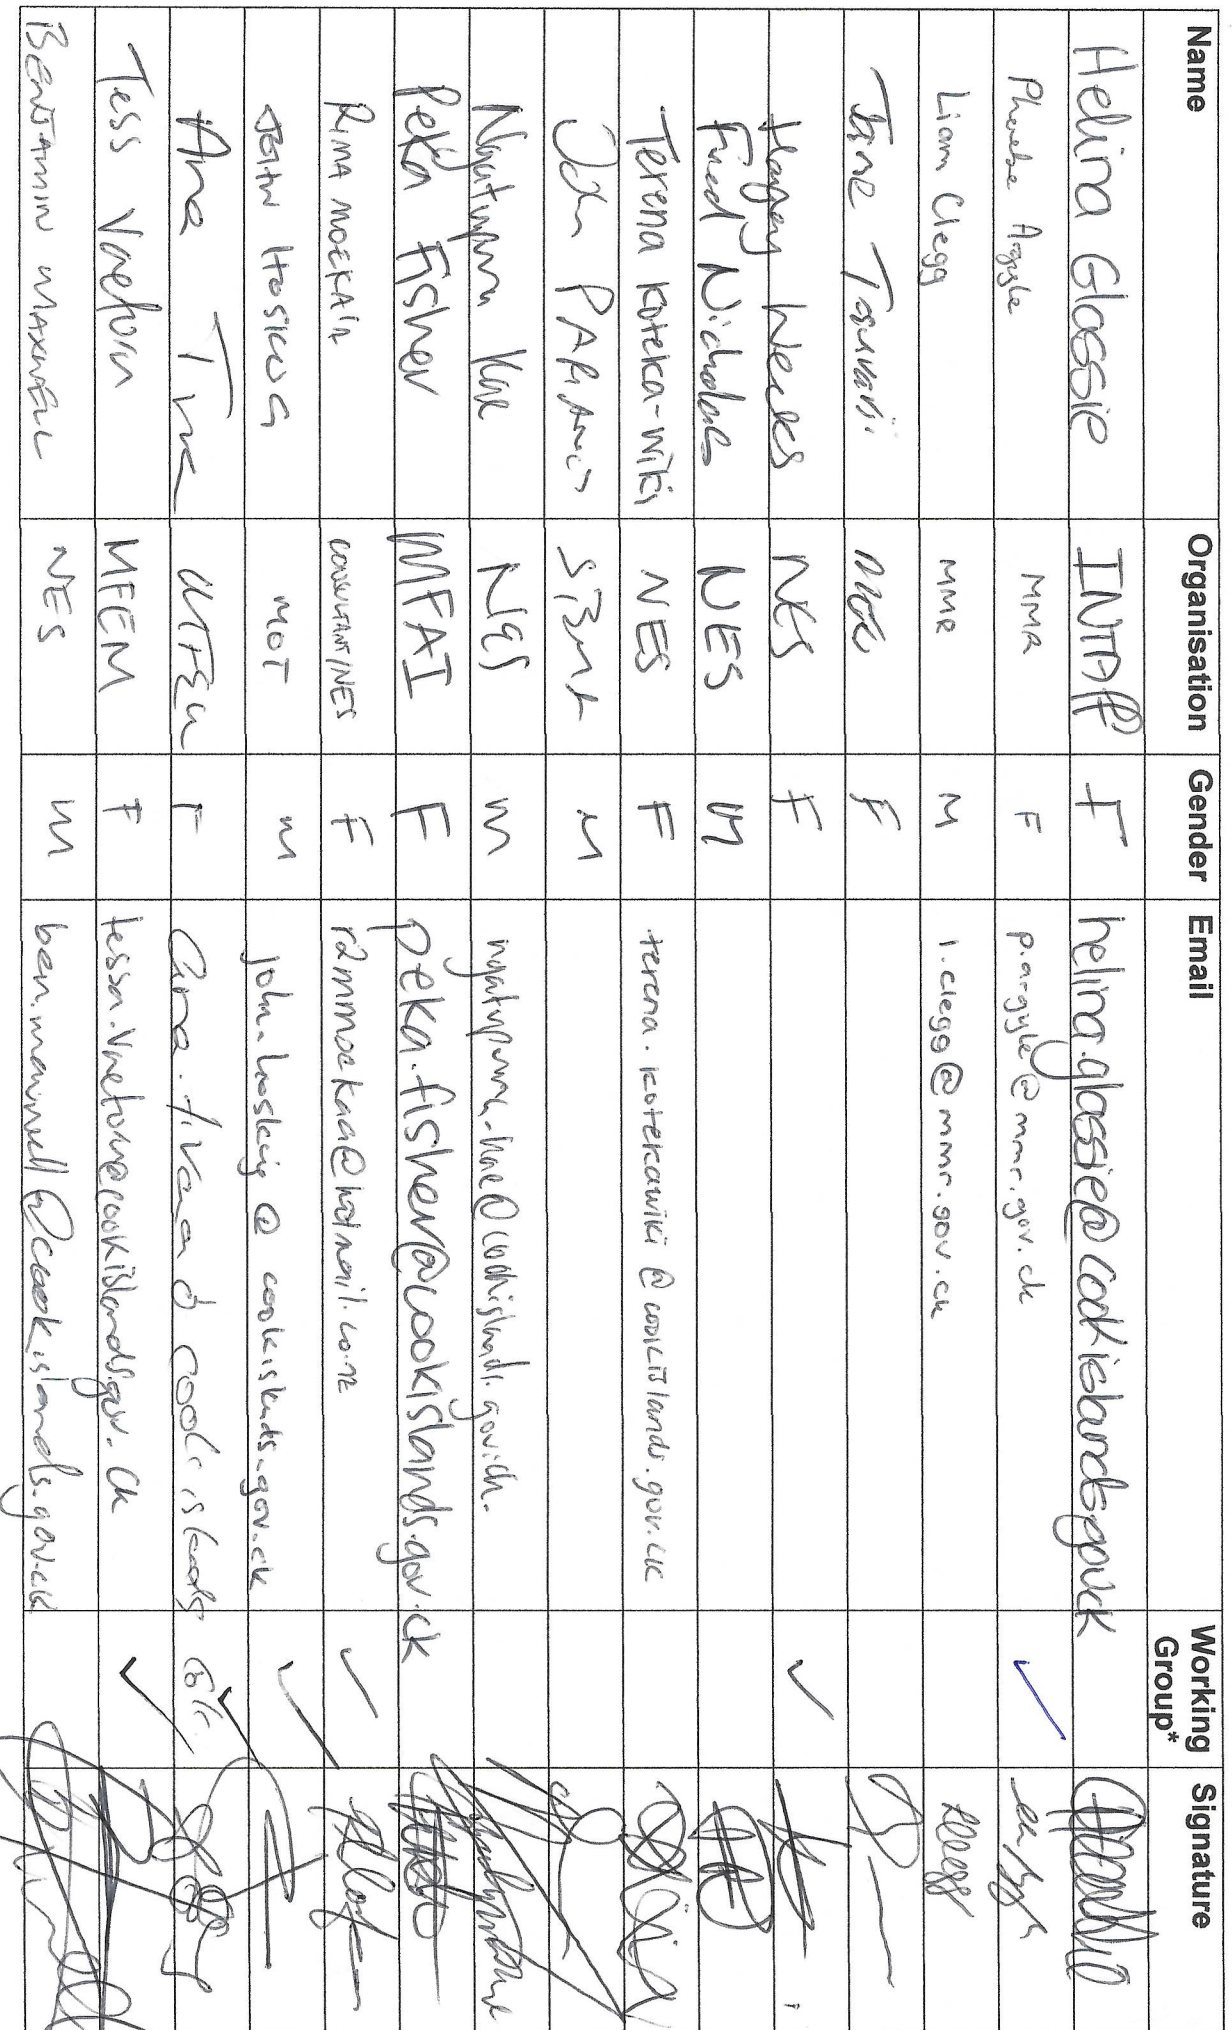 Name Organisation Gender Email Working Group* Signature
Helina Glassie INTAff F helina.glassie@cookislands.gov.ck
Phoebe Argyle MMR F p.argyle@mmr.gov.ck
Liam Clegg MMR M l.clegg@mmr.gov.ck
Jane F
Hayley Weeks NES F
Fred Nicholas NES M
Terena Koteka-Wiki NES F terena.kotekawiki@cookislands.gov.ck
John M
Ngatupuna NES M
Peka Fisher MFAI F peka.fisher@cookislands.gov.ck
RIMA MOEKA'A CONSULTANT/NES F r2mmoekaa@hotmail.co.nz
JOHN HOSKING MOT M john.hosking@cookislands.gov.ck
Ana F cookislands
Tess Vaetoru MFEM F tessa.vaetoru@cookislands.gov.ck
BENJAMIN MAXWELL NES M ben.maxwell@cookislands.gov.ck